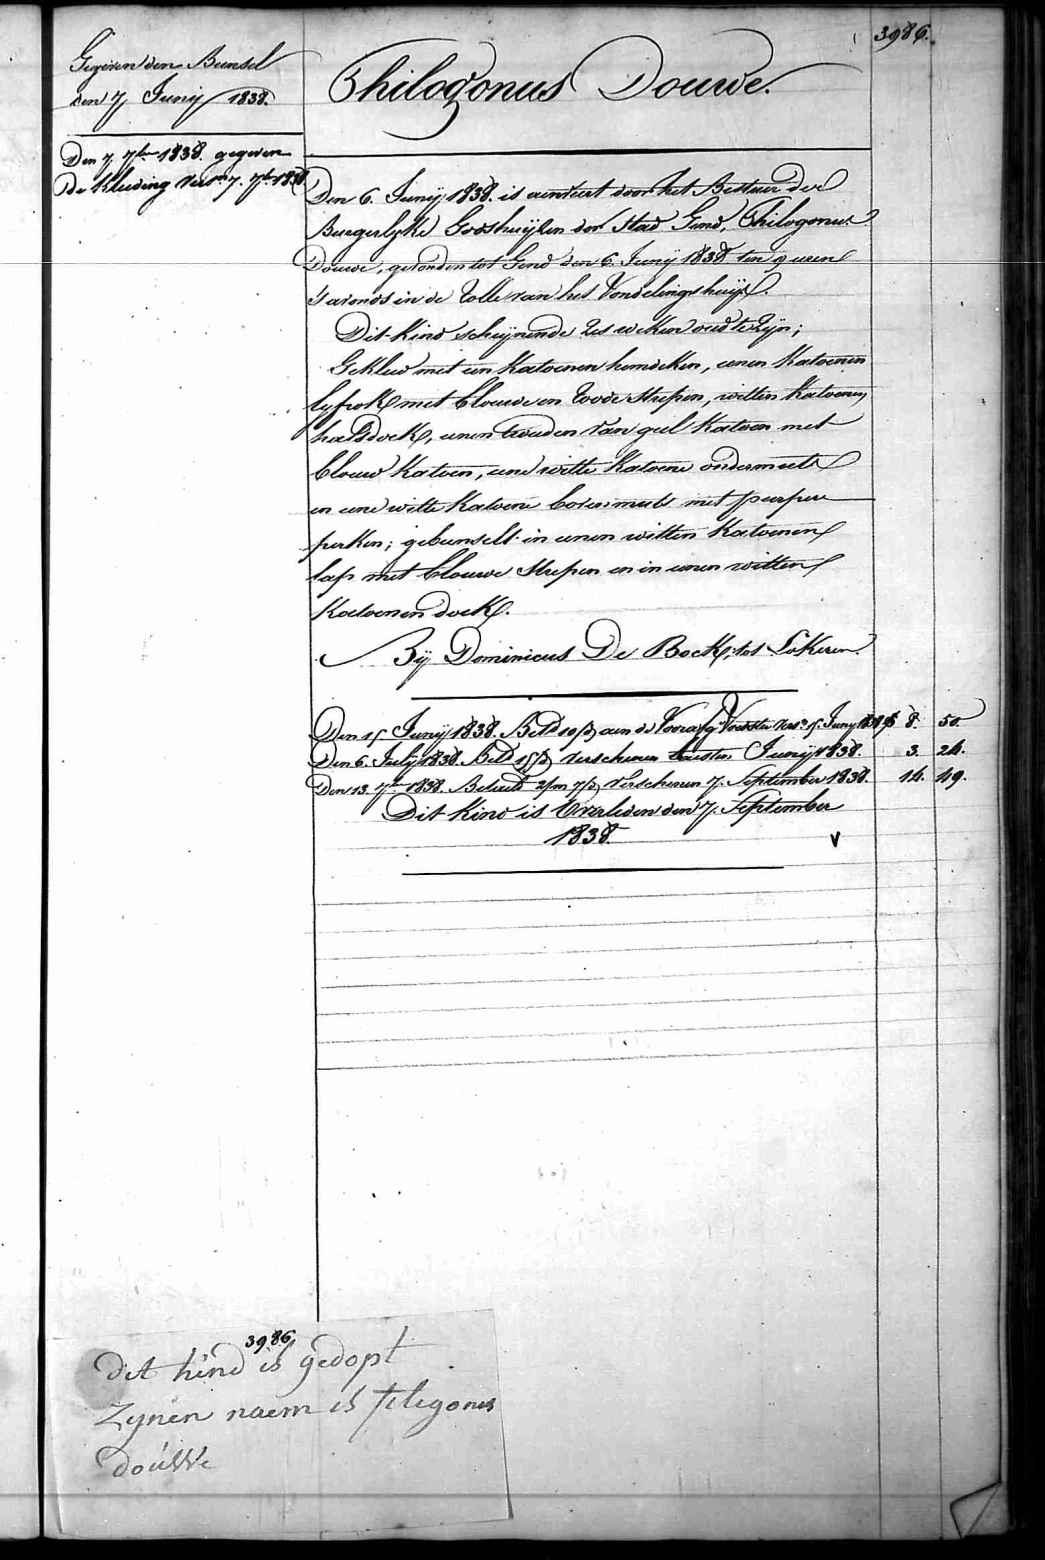 3986.
Gegeven den Bunsel
den 7 Junij 1838.
Den 7. 7ber 1838. gegeven
De kleeding vers. 7. 7ber 1838
Philogonus Douwe.
Den 6. Junij 1838. is aenveert door het Bestuur der
Burgerlyke Godshuijsen der Stad Gend, Philogonus
Douwe, gevonden tot Gend den 6. Junij 1838 ten 9 uren
s'avonds in de Rolle van het Vondelingshuijs.
Dit kind scheijnende zes weken oud te zijn;
Gekleed met een katoenen hemdeken, eenen katoenen
lyfrok met blouwe en roode strepen, witten katoenen
halsdoek, eenen van geel katoen met
blouw katoen, eene witte katoene ondermuts
en eene witte katoene bovenmuts met purpere
perken; gebunselt in eenen witten katoenen
lap met blouwe strepen en in eenen witten
katoenen doek.
Bij Dominicus De Bock, tot Lokeren.
Den 15 Junij 1838. Beth aen de Voedster vers. 15. Junij 1838 8. 50.
Den 6. July 1838. Beth verschenen Junij 1838. 3. 24.
Den 13. 7ber 1838. Betaeld 2/m 7/d Verschenen 7. September 1838. 14. 49.
Dit kind is Overleden den 7. September
1838. v
3986
dit kind is gedopt
Zynen naem is filegonus
douwe